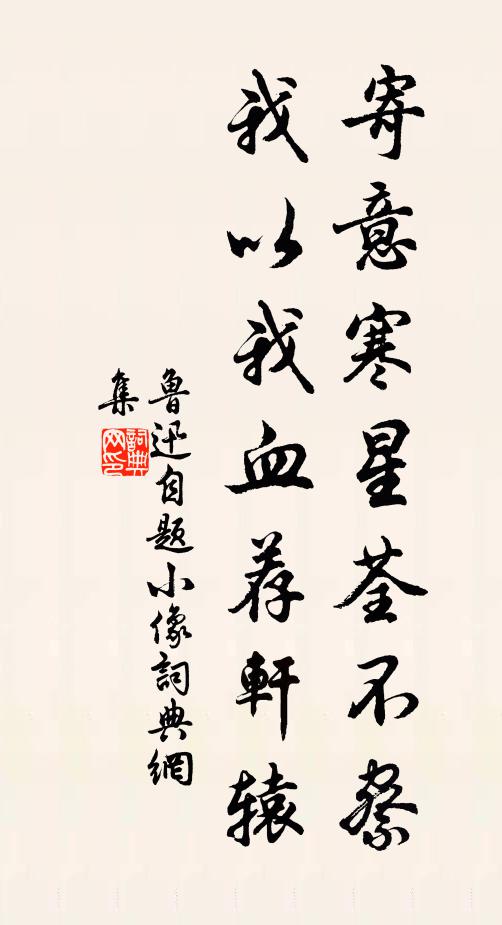 寄意寒星荃不察
我以我血荐軒辕
魯迅自題小像詞典網
集
詞典
网印